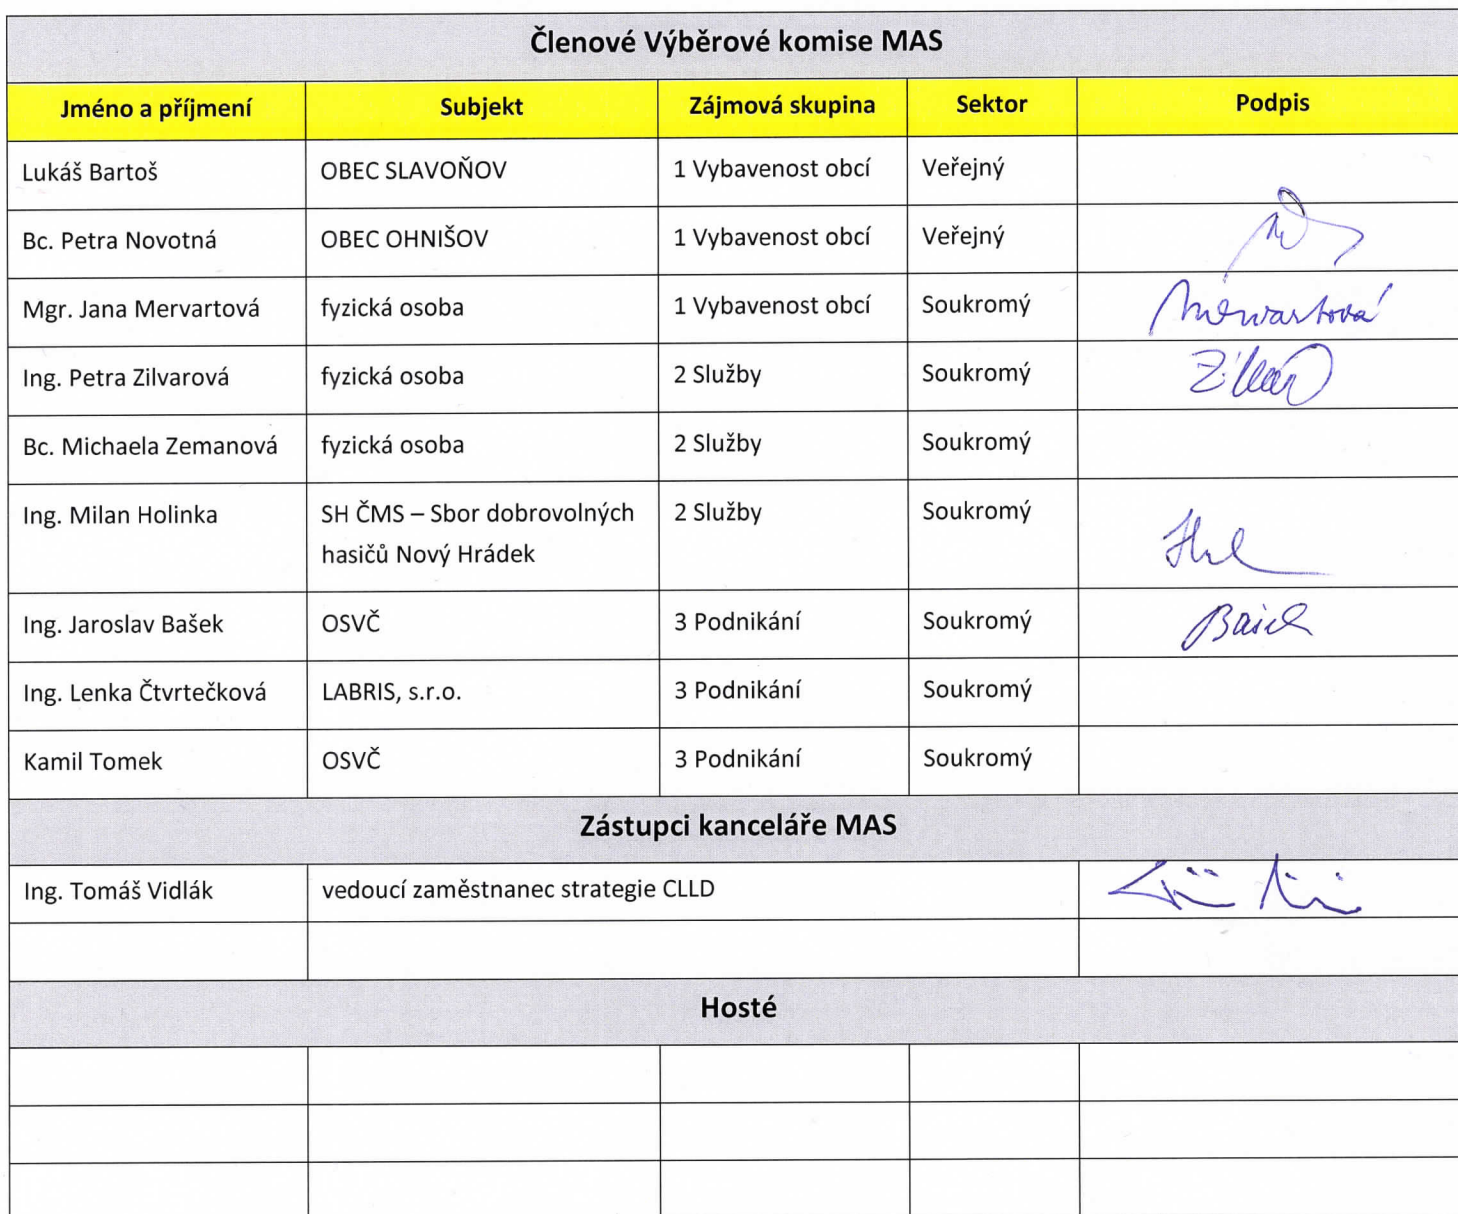 Členové Výběrové komise MAS
Jméno a příjmení Subjekt Zájmová skupina Sektor Podpis
Lukáš Bartoš OBEC SLAVOŇOV 1 Vybavenost obcí Veřejný
Bc. Petra Novotná OBEC OHNIŠOV 1 Vybavenost obcí Veřejný
Mgr. Jana Mervartová fyzická osoba 1 Vybavenost obcí Soukromý Mervartová
Ing. Petra Zilvarová fyzická osoba 2 Služby Soukromý
Bc. Michaela Zemanová fyzická osoba 2 Služby Soukromý
Ing. Milan Holinka SH ČMS – Sbor dobrovolných 2 Služby Soukromý
hasičů Nový Hrádek
Ing. Jaroslav Bašek OSVČ 3 Podnikání Soukromý
Ing. Lenka Čtvrtečková LABRIS, s.r.o. 3 Podnikání Soukromý
Kamil Tomek OSVČ 3 Podnikání Soukromý
Zástupci kanceláře MAS
Ing. Tomáš Vidlák vedoucí zaměstnanec strategie CLLD
Hosté